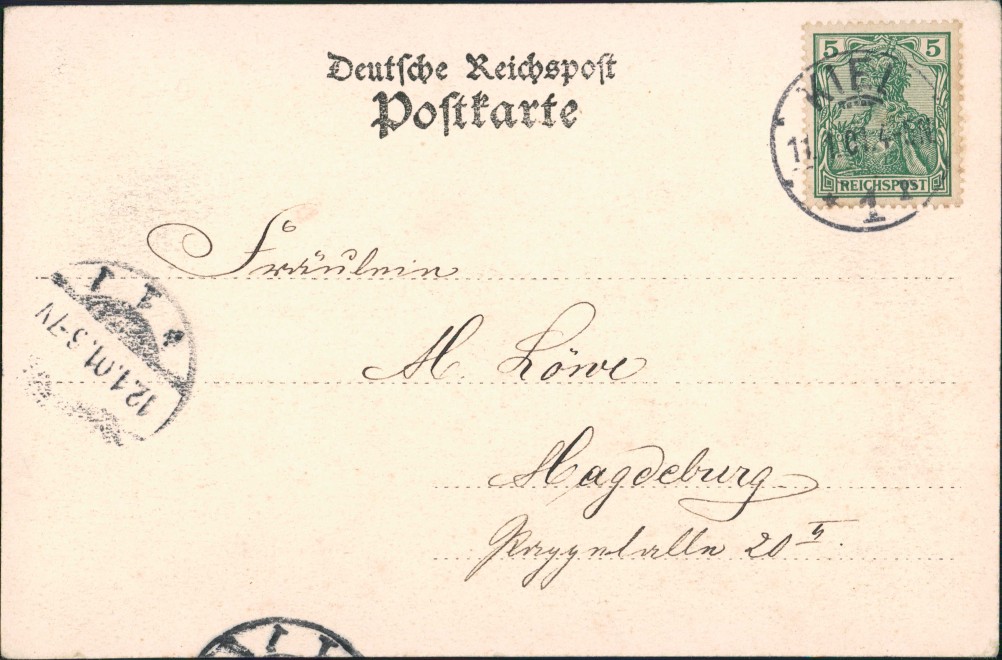 Deutsche Reichspost
Postkarte
5 5
REICHSPOST
KIEL
11.1.01.4-
1
Fräulein
M. Löwe
Magdeburg
20
12.1.01.5-7V